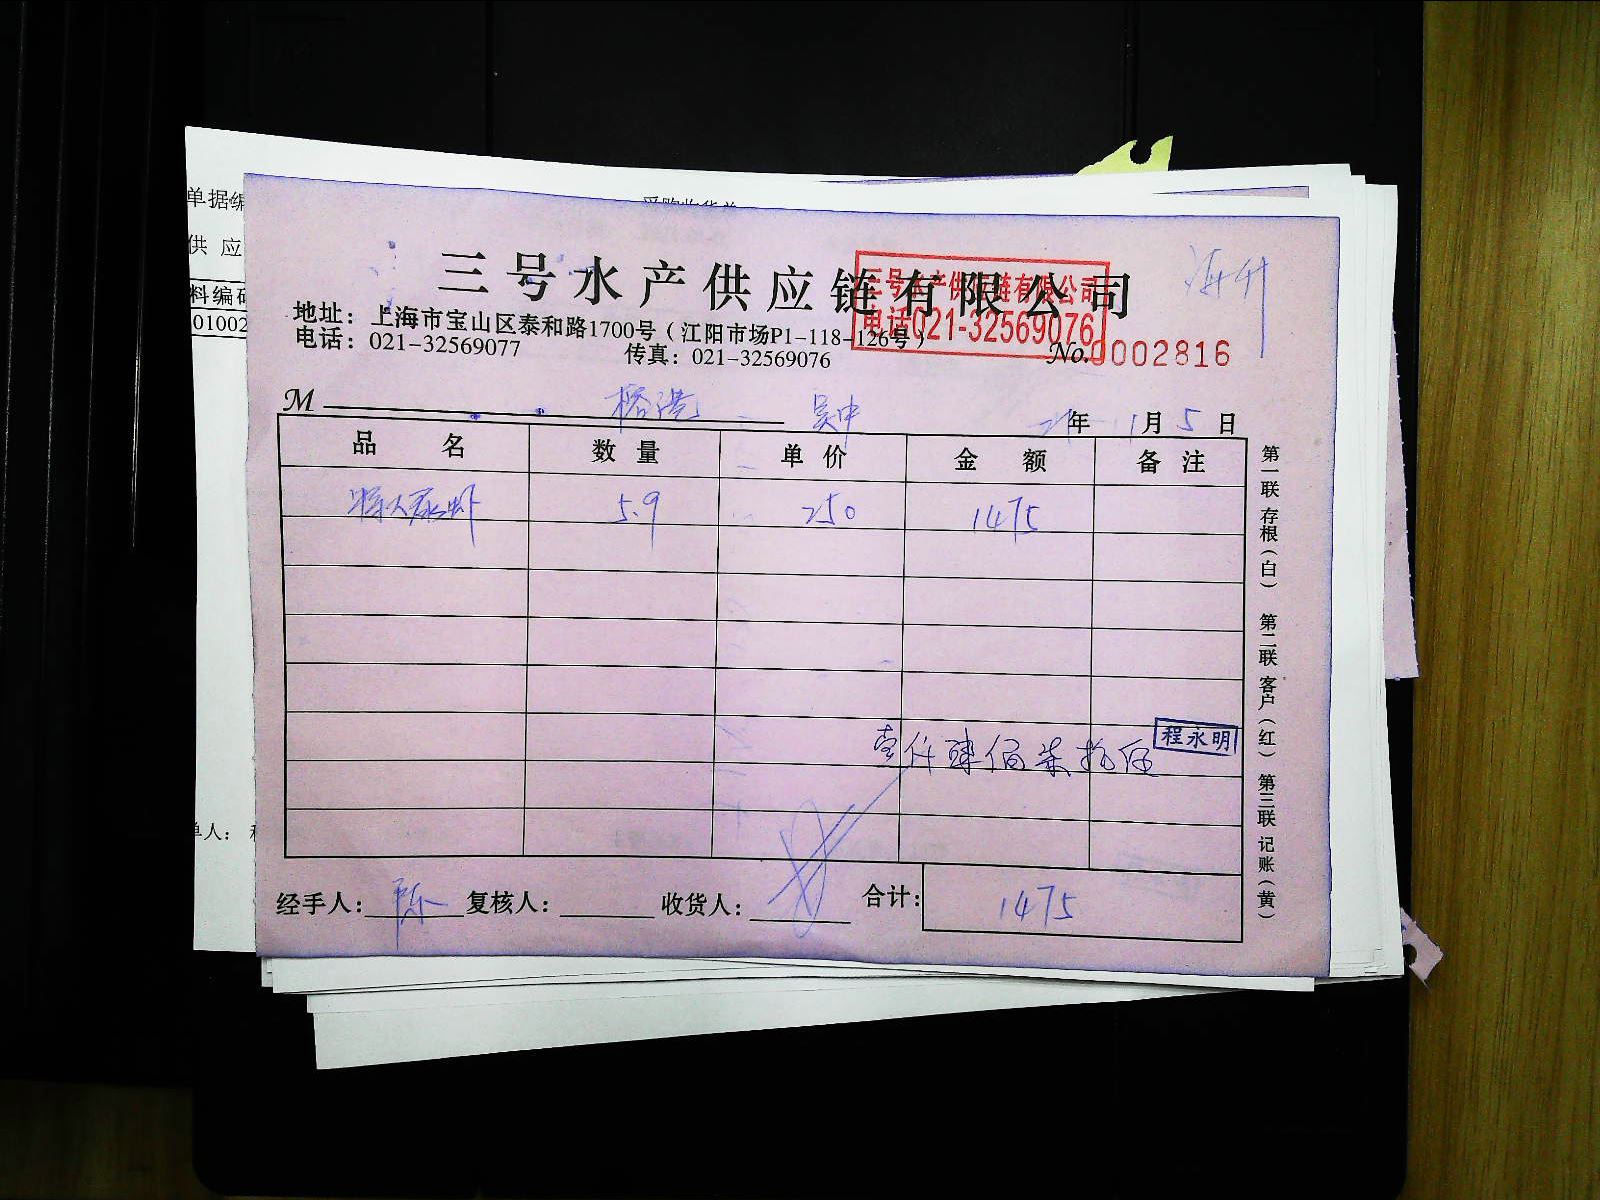 单据编
供 应
料编码
01002
单人：
三号水产供应链有限公司
三号水产供应链有限公司
电话021-32569076
地址：上海市宝山区泰和路1700号（江阳市场P1-118-126号）
电话：021-32569077 传真：021-32569076
No.0002816
M 榕港 吴中 21年 1月 5日
品 名 数 量 单 价 金 额 备 注
5.9 250 1475
壹仟肆佰柒拾伍
程永明
经手人：陈 复核人： 收货人： 合计：1475
第一联 存根（白） 第二联 客户（红） 第三联 记账（黄）